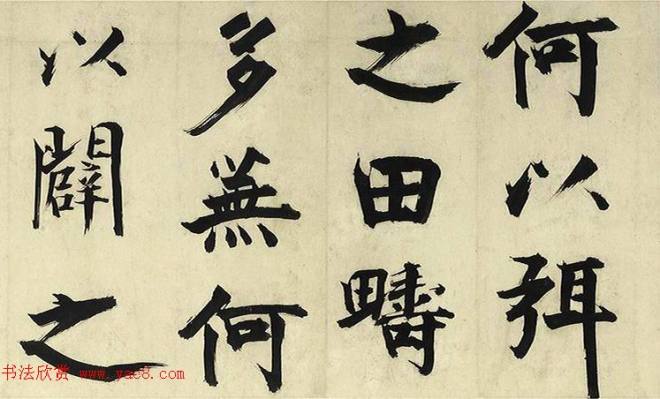 何以弭
之田疇
多蕪何
以闢之
书法欣赏 www.yac8.com